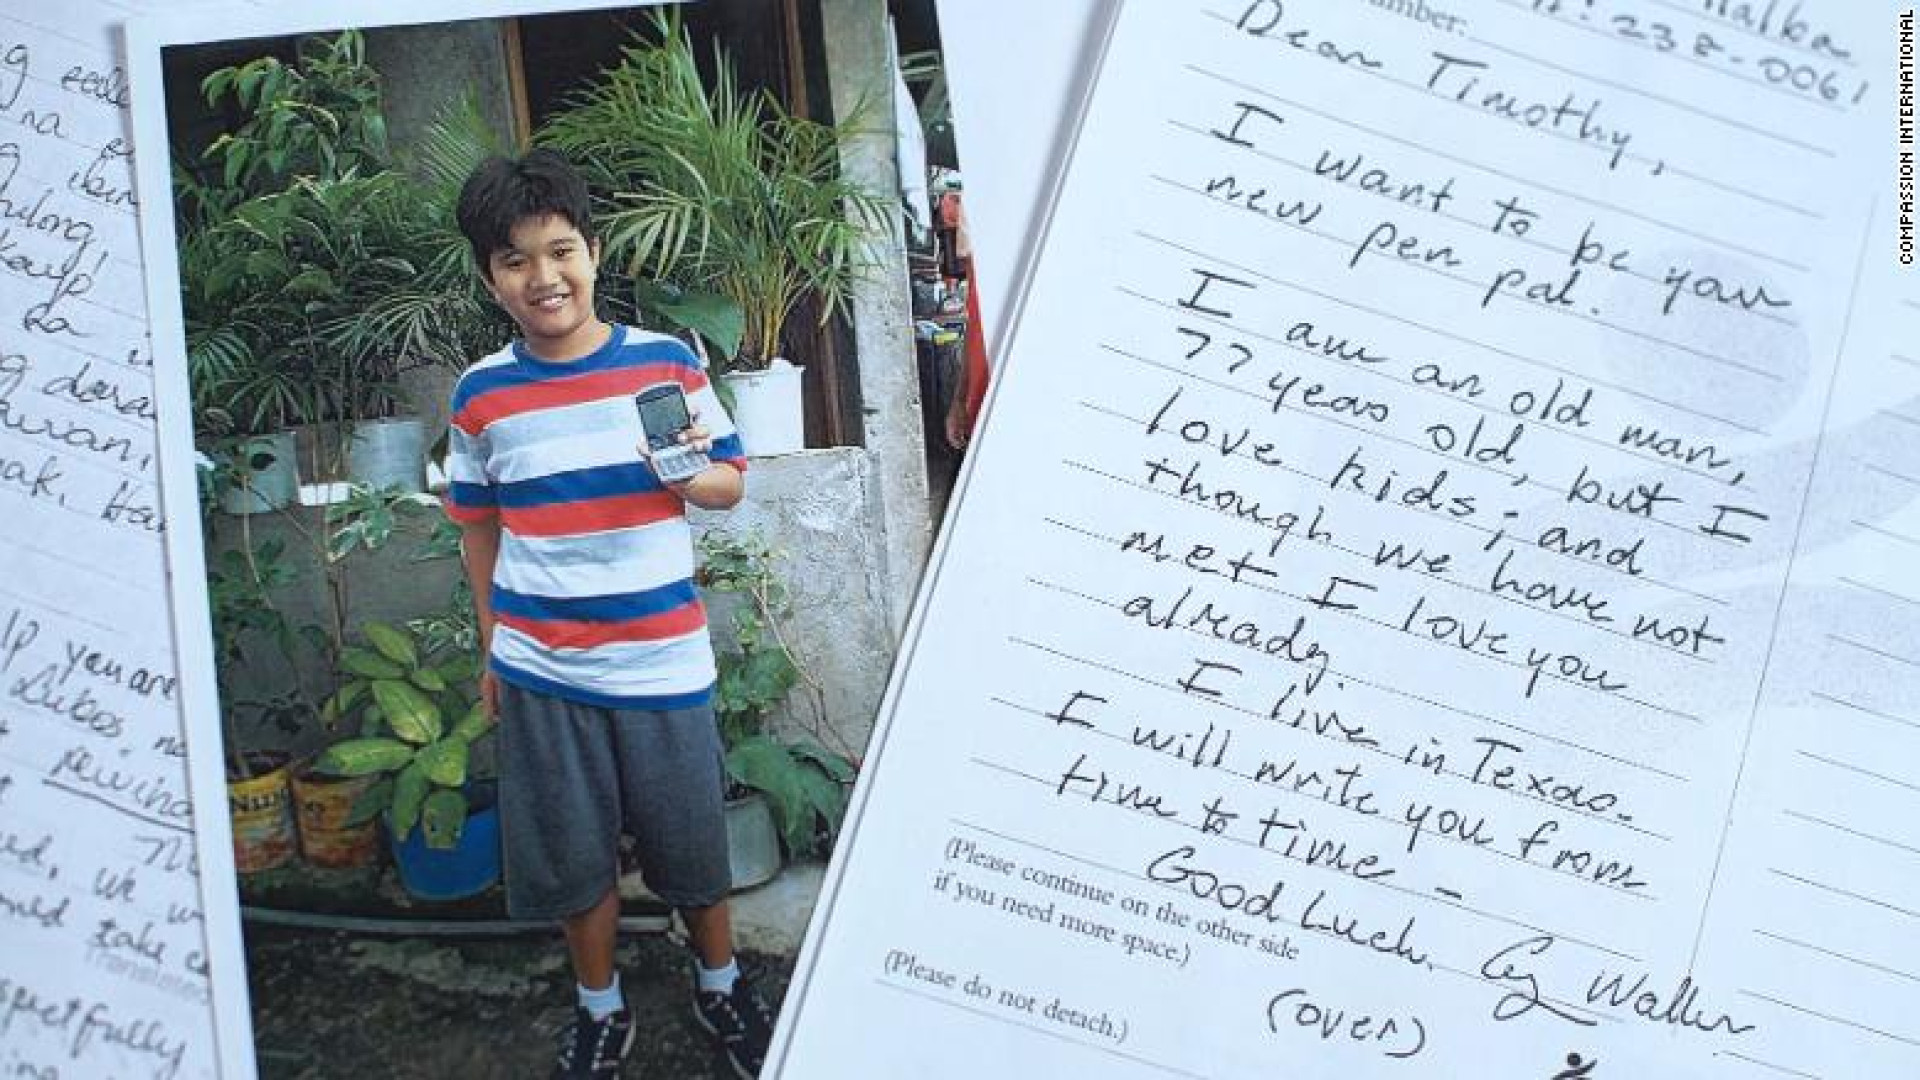 na
iban
kayo
sa
lp you are
Lubos, na
ed, we w
take c
Translated
spectfully
NIDO
umber:
238-0061
Dear Timothy,
I want to be your
new pen pal.
I am an old man,
77 years old, but I
love kids; and
though we have not
met I love you
already.
I live in Texas-
I will write you from
time to time -
Good Luck. G Walker
(Please continue on the other side
if you need more space.)
(over)
(Please do not detach.)
COMPASSION INTERNATIONAL